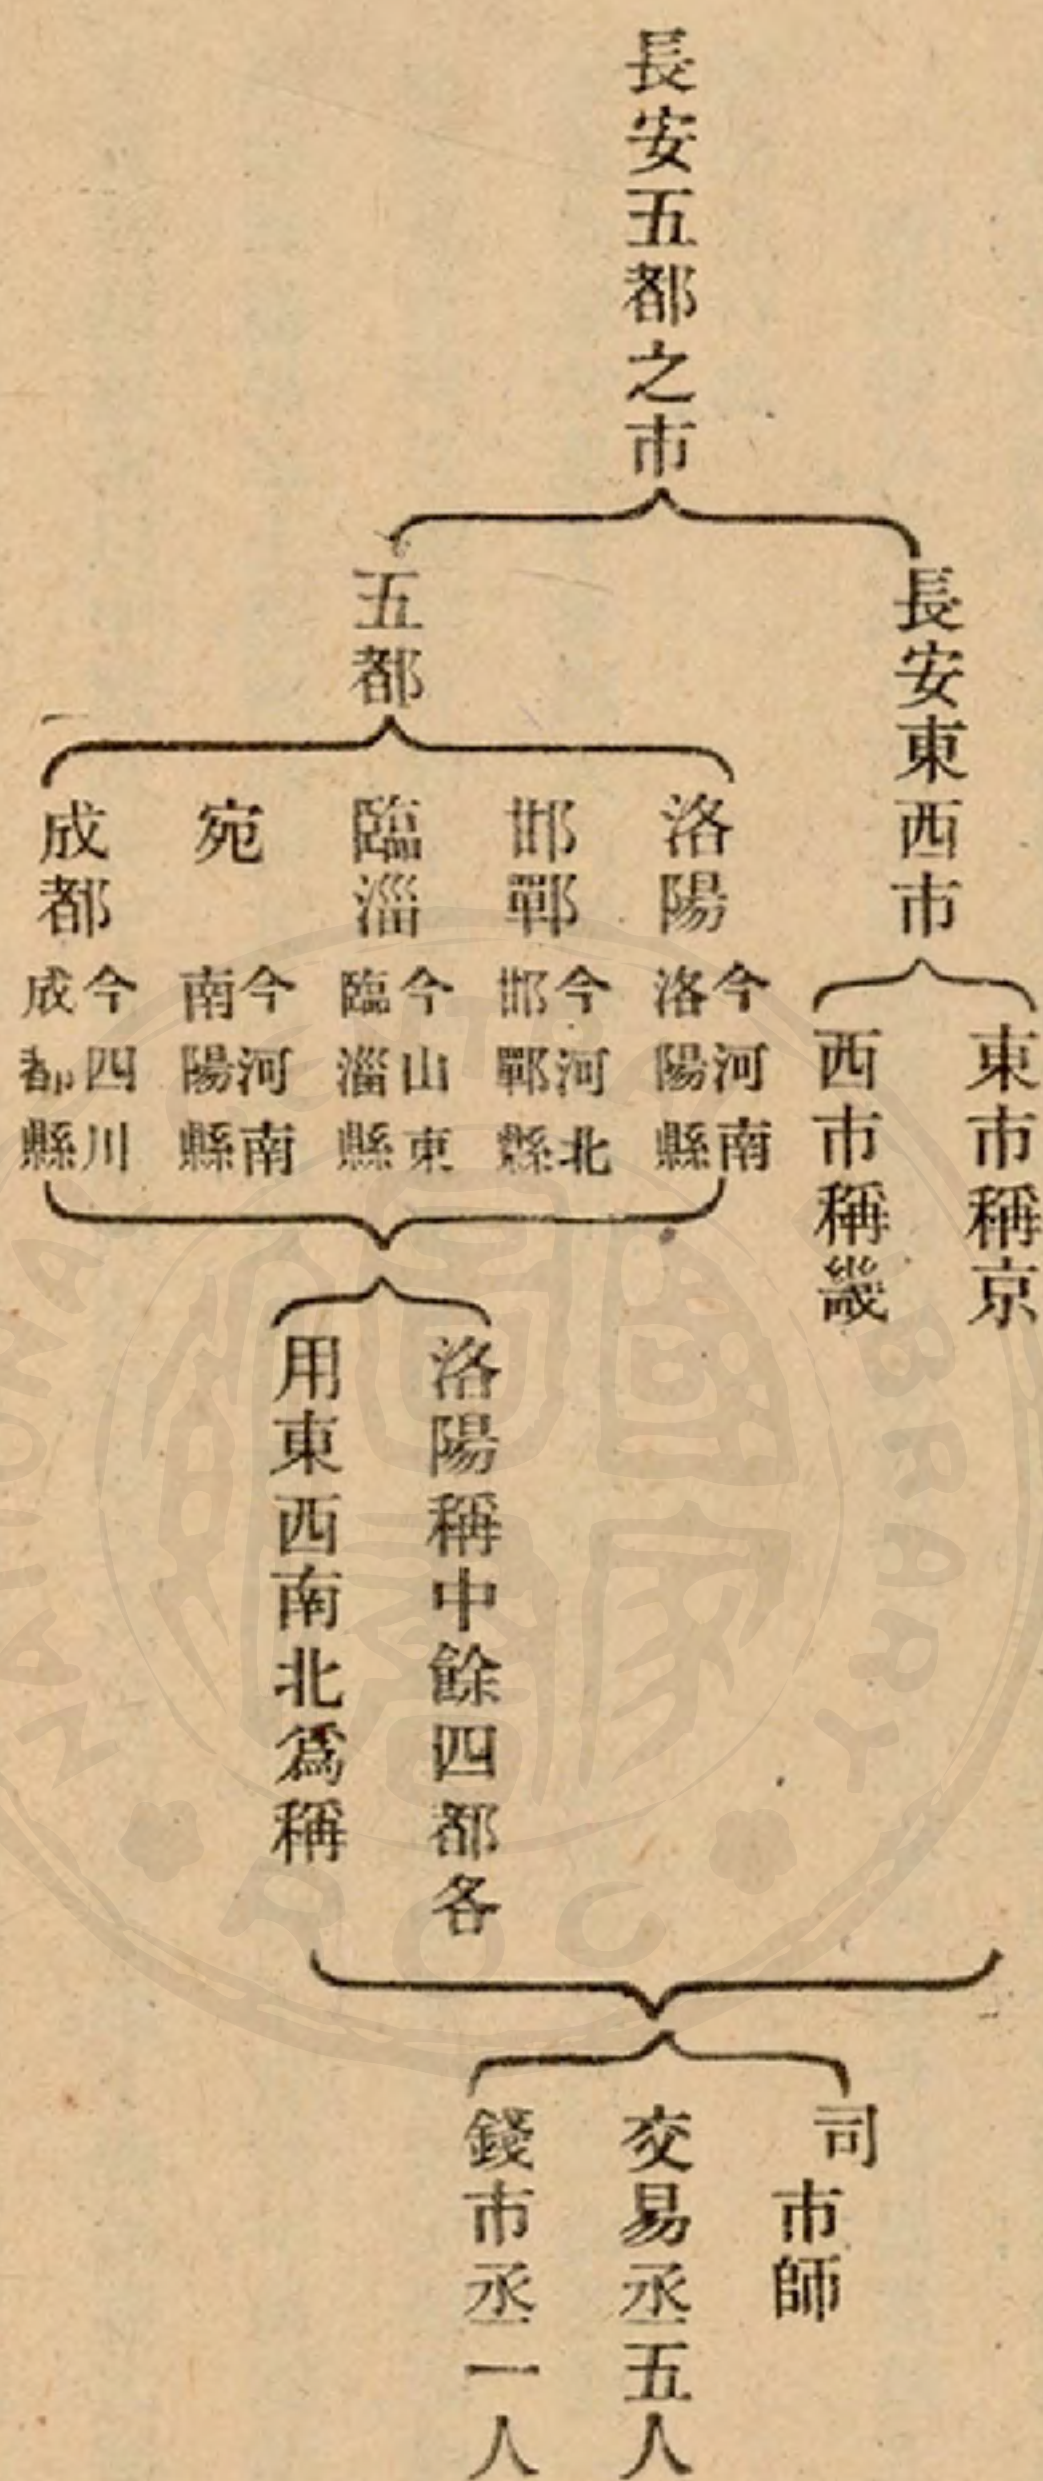 長安五都之市
長安東西市
東市稱京
西市稱畿
五都
洛陽
今河南
洛陽縣
邯鄲
今河北
邯鄲縣
臨淄
今山東
臨淄縣
宛
今河南
南陽縣
成都
今四川
成都縣
洛陽稱中餘四都各
用東西南北爲稱
司市師
交易丞五人
錢市丞一人
NATIONAL LIBRARY
ROC